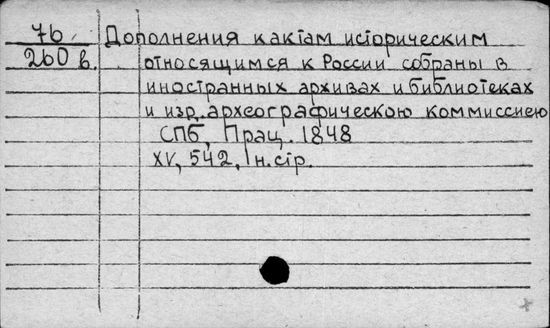 76
260 в.
Дополнения к актам историческим
относящимся к России собраны в
иностранных архивах и библиотеках
и изд. археографическою коммиссиею
СПб, Прац. 1848
XV, 542, 1 н.стр.